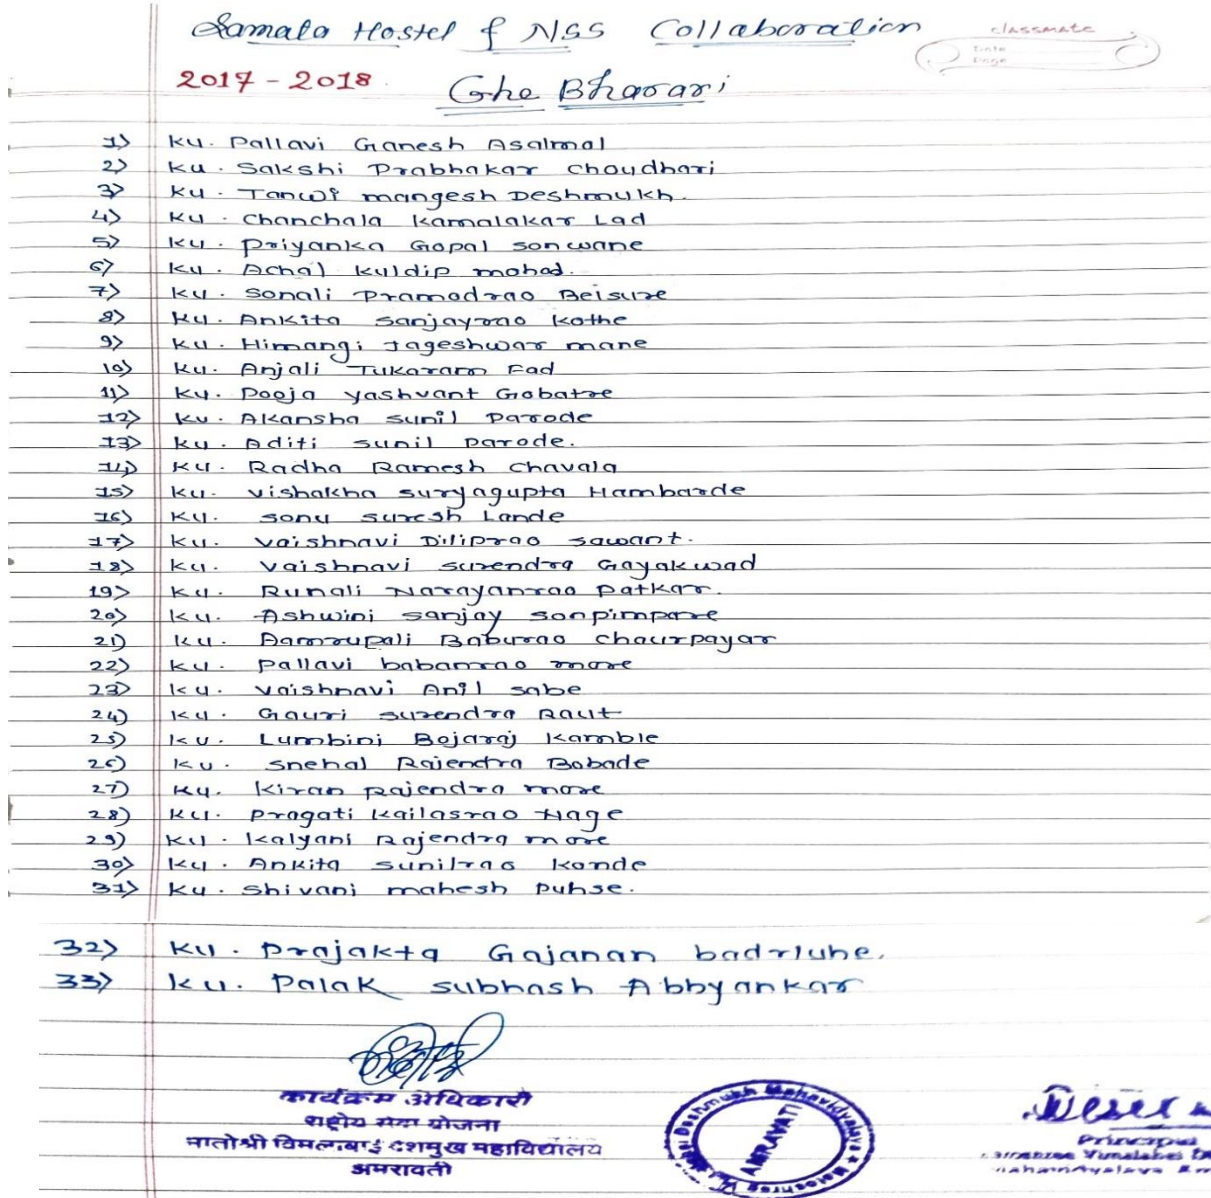 Samata Hostel & NSS Collaboration
classmate
Date
Page
2017-2018
Ghe Bharari
1) Ku. Pallavi Ganesh Asalmol
2) Ku. Sakshi Prabhakar Choudhari
3) Ku. Tanwi mangesh Deshmukh.
4) Ku. Chanchala Kamalakar Lad
5) Ku. Priyanka Gopal Sonwane
6) Ku. Achal Kuldip mohod.
7) Ku. Sonali Pramodrao Beisure
8) Ku. Ankita Sanjayrao Kothe
9) Ku. Himangi Jageshwar mane
10) Ku. Anjali Tukaram Fad
11) Ku. Pooja yashvant Gobatre
12) Ku. Akansha Sunil Parode
13) Ku. Aditi Sunil Parode.
14) Ku. Radha Ramesh Chavala
15) Ku. Vishakha Suryagupta Hambarde
16) Ku. Sonu Suresh Lande
17) Ku. Vaishnavi Diliprao Sawant.
18) Ku. Vaishnavi Surendra Gayakwad
19) Ku. Runali Narayanrao Patkar.
20) Ku. Ashwini Sanjay Sonpimpare
21) Ku. Aamrupali Baburao Chaurpayar
22) Ku. Pallavi babanrao more
23) Ku. Vaishnavi Anil Sabe
24) Ku. Gauri Surendra Raut
25) Ku. Lumbini Bojaraj Kamble
26) Ku. Snehal Rajendra Bobade
27) Ku. Kiran Rajendra more
28) Ku. Pragati Kailasrao Hage
29) Ku. Kalyani Rajendra more
30) Ku. Ankita Sunilrao Konde
31) Ku. Shivani mahesh Puhse.
32) Ku. Prajakta Gajanan
33) Ku. Palak Subhash Abbyankar
कार्यक्रम अधिकारी
राष्ट्रीय सेवा योजना
मातोश्री विमलाबाई देशमुख महाविद्यालय
अमरावती
Deshmukh Mahavidyalaya
AMRAVATI
Principal
Vimalabai